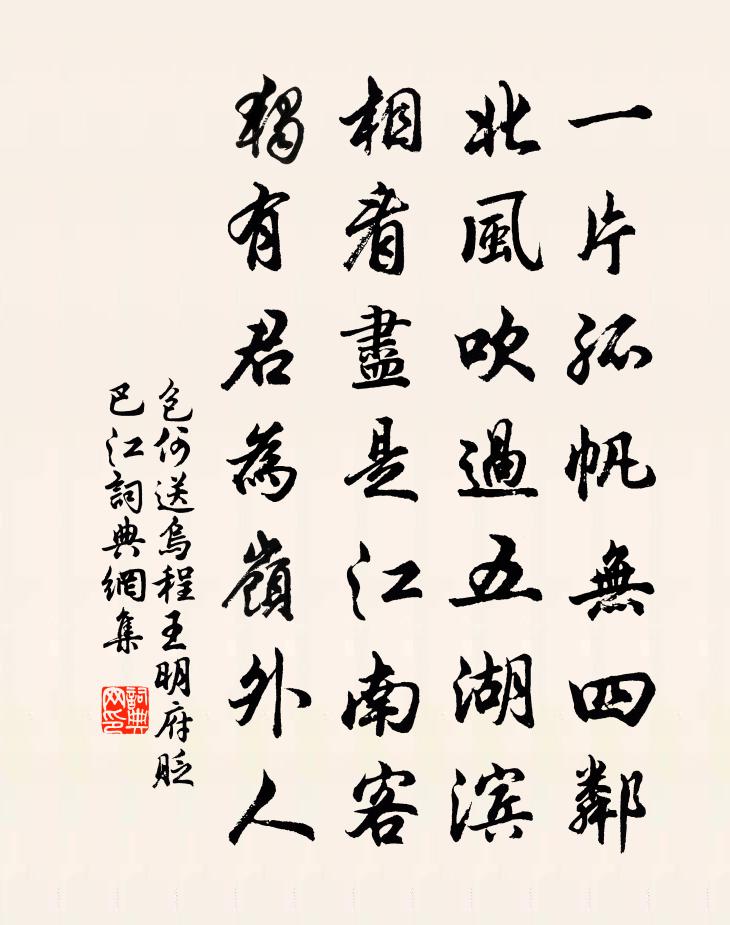 一片孤帆無四鄰
北風吹過五湖滨
相看盡是江南客
獨有君為嶺外人
包何送烏程王明府貶
巴江詞典網集
詞典網印